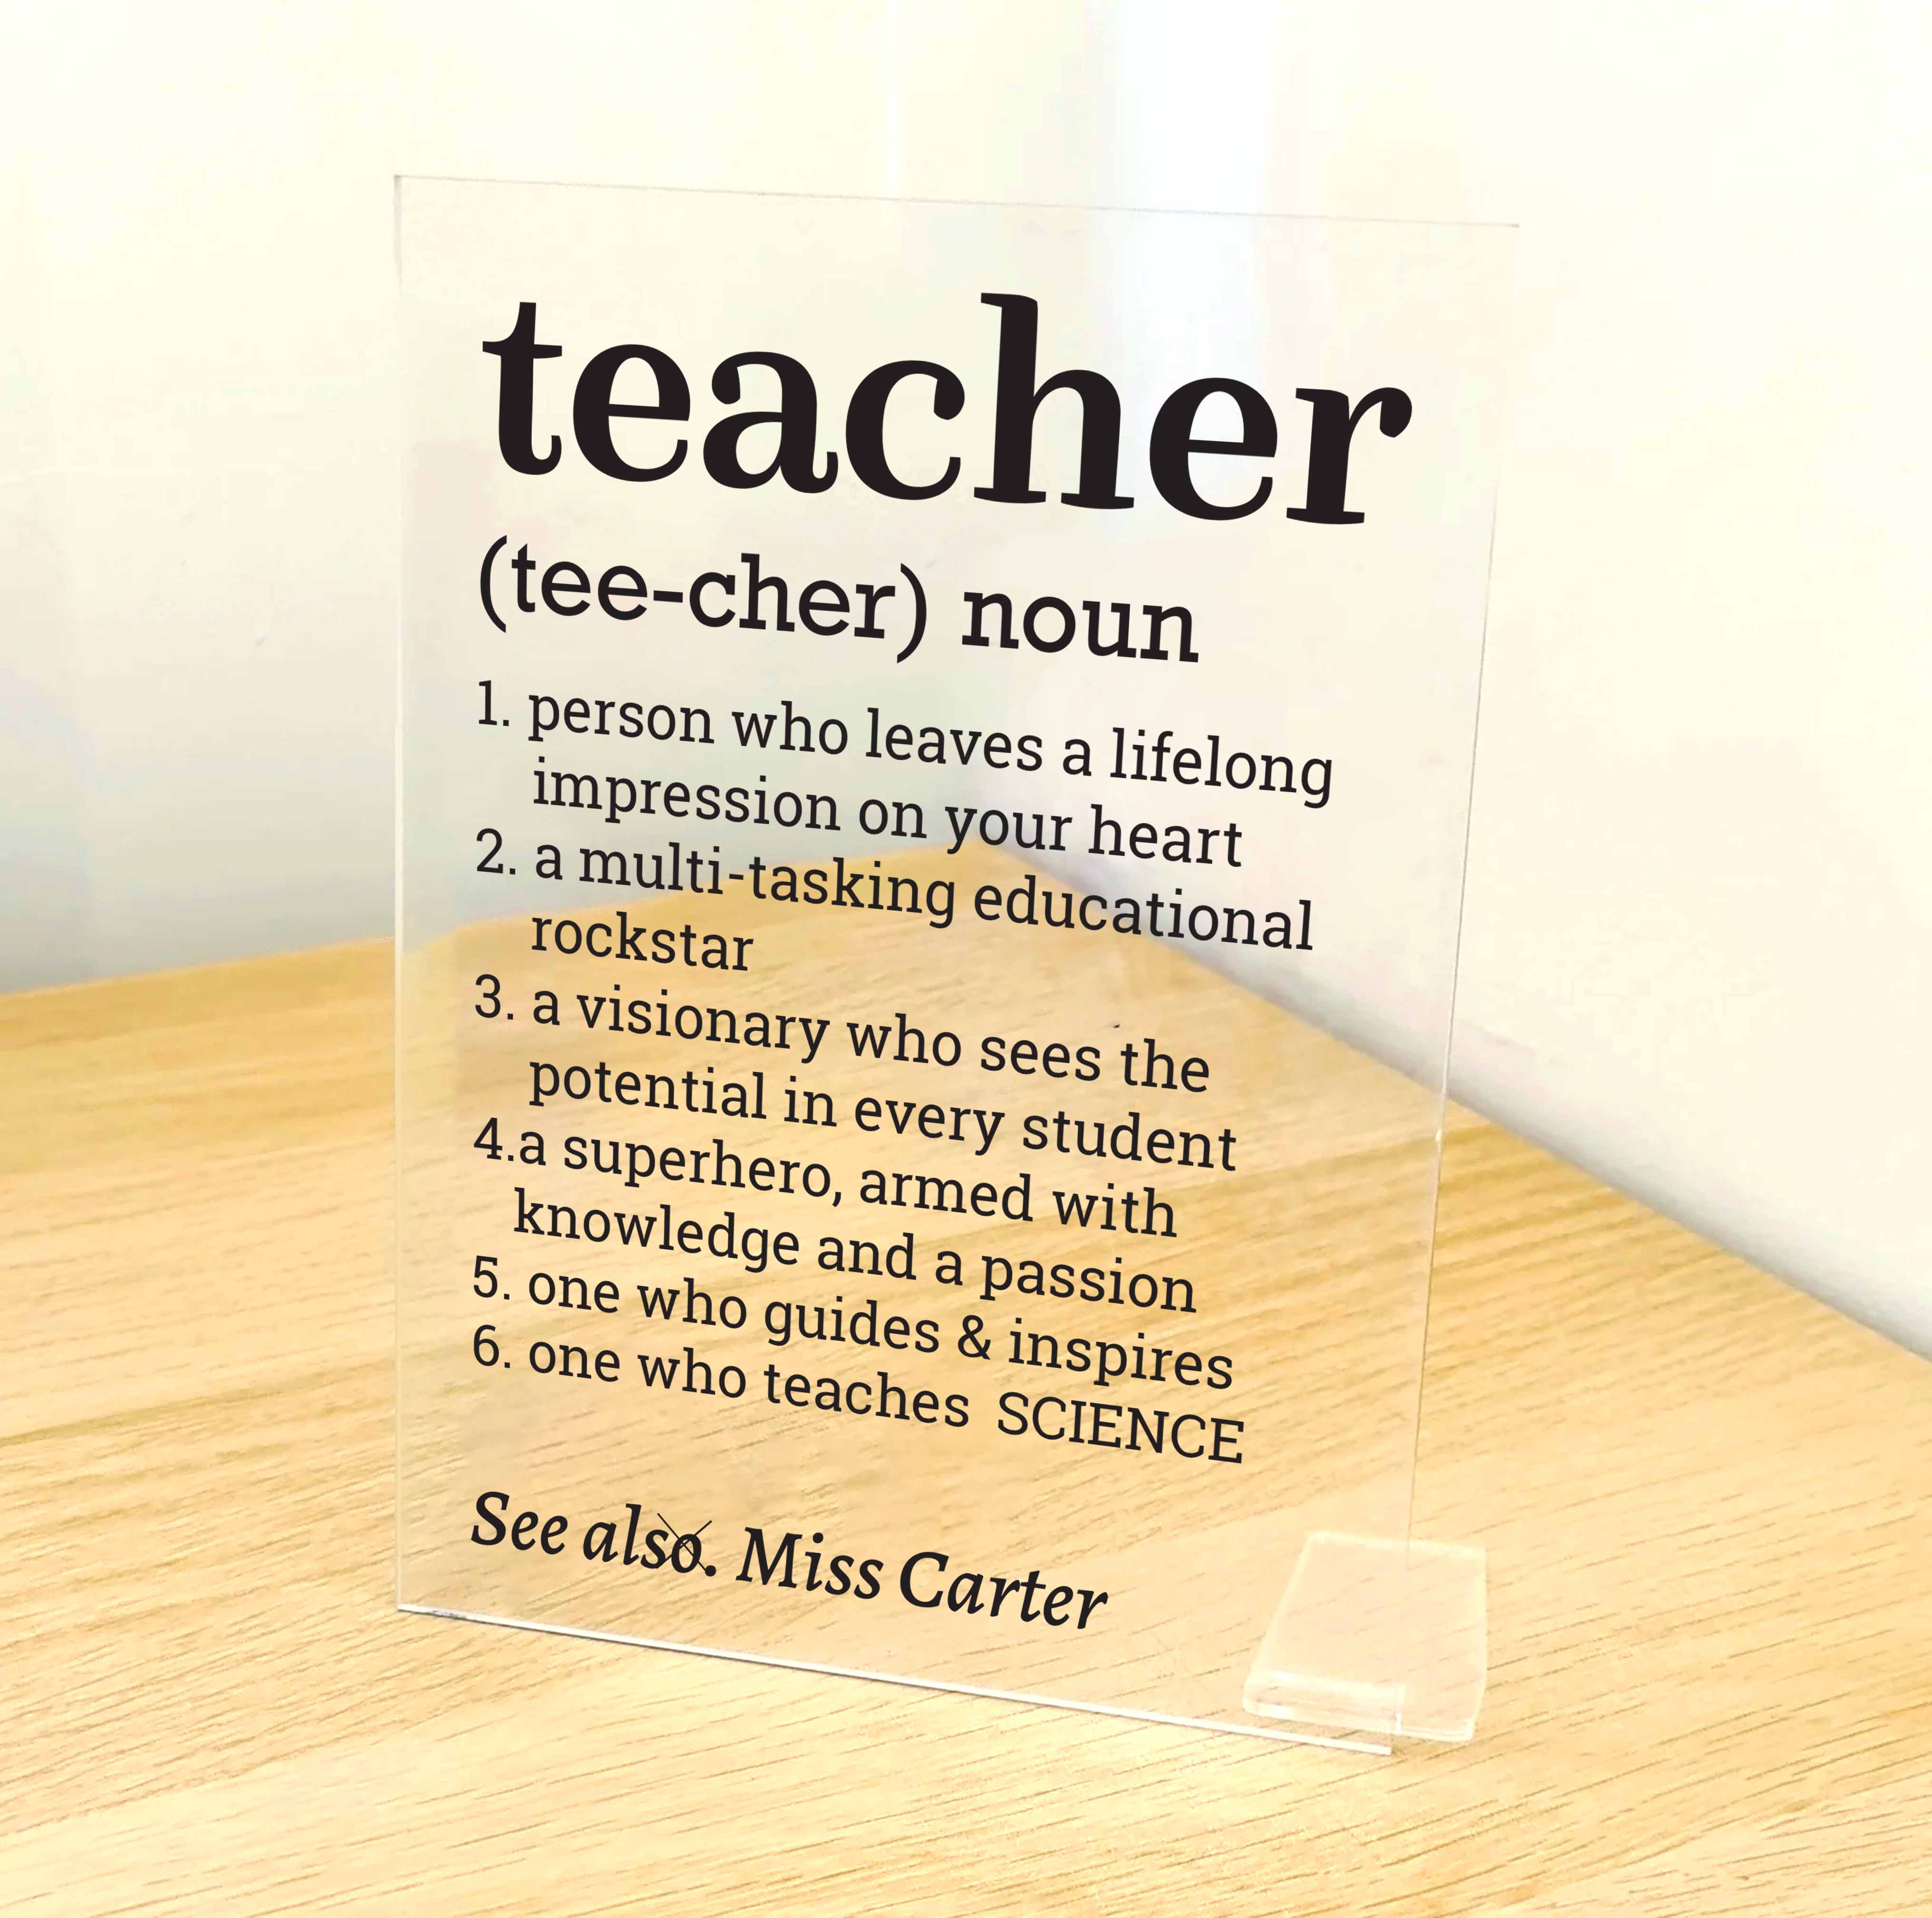 teacher
(tee-cher) noun
1. person who leaves a lifelong
impression on your heart
2. a multi-tasking educational
rockstar
3. a visionary who sees the
potential in every student
4.a superhero, armed with
knowledge and a passion
5. one who guides & inspires
6. one who teaches SCIENCE
See also. Miss Carter